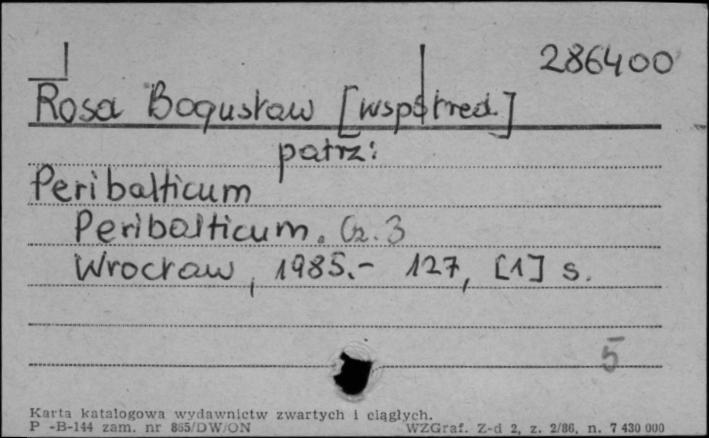 286400
Rosa Bogusław [współred.]
patrz:
Peribalticum
Peribalticum. Cz. 3
Wrocław, 1985.- 127, [1] s.
5
Karta katalogowa wydawnictw zwartych i ciągłych.
P -B-144 zam. nr 865/DW/ON WZGraf. Z-d 2, z. 2/86, n. 7 430 000